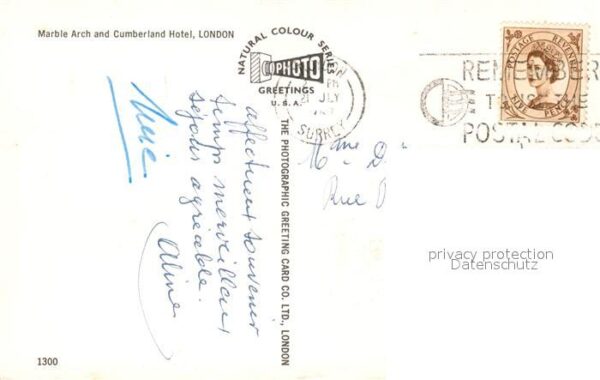 Marble Arch and Cumberland Hotel, LONDON
NATURAL COLOUR SERIES
PHOTO
GREETINGS
U.S.A.
THE PHOTOGRAPHIC GREETING CARD CO. LTD., LONDON
affectueux souvenir
temps merveilleux
séjour agréable.
Aline
1300
21 JLY
SURREY
POSTAGE REVENUE
REMEMBER
POSTAL CODE
Rue
privacy protection
Datenschutz